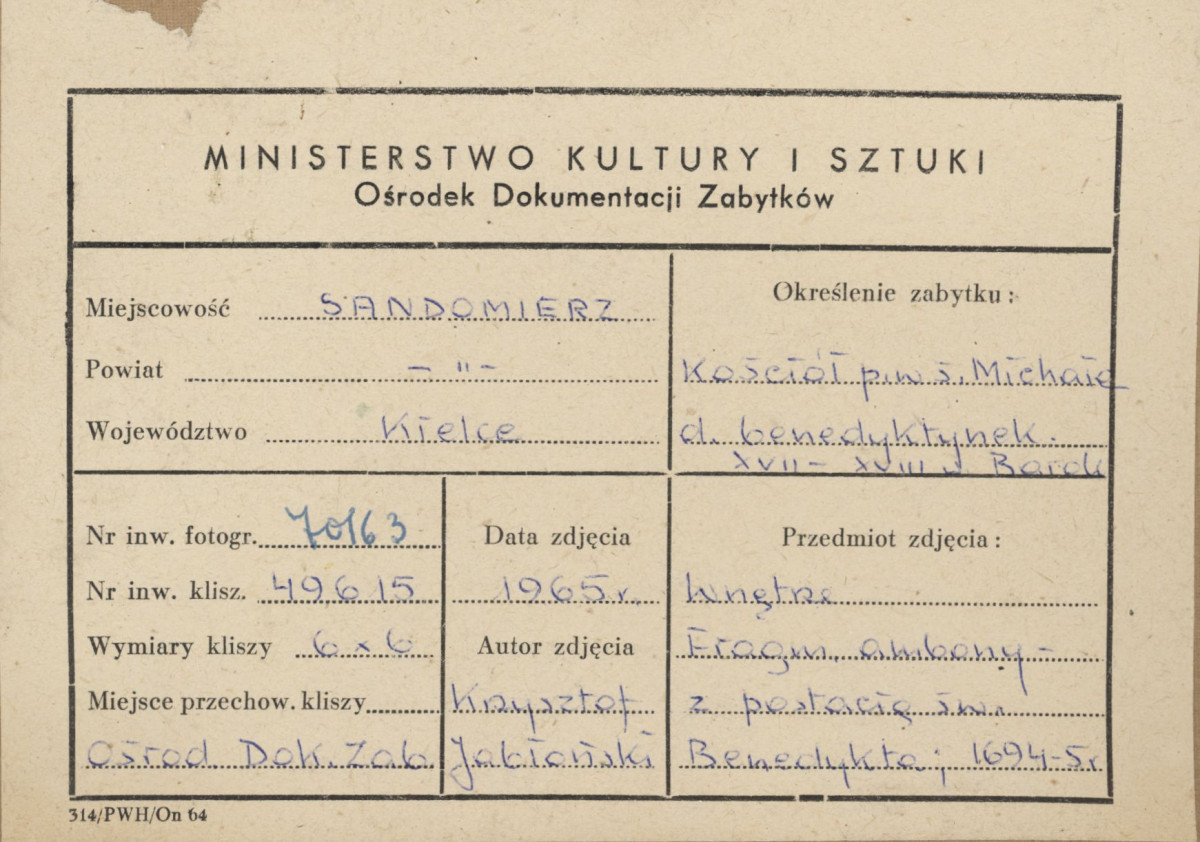 MINISTERSTWO KULTURY I SZTUKI
Ośrodek Dokumentacji Zabytków
Miejscowość SANDOMIERZ
Powiat — " —
Województwo Kielce
Określenie zabytku:
Kościół p.w ś. Michała
d. benedyktynek.
XVII – XVIII w. Barok
Nr inw. fotogr. 70163
Nr inw. klisz. 49615
Wymiary kliszy 6 x 6
Miejsce przechow. kliszy
Ośrod. Dok. Zab
Data zdjęcia
1965 r.
Autor zdjęcia
Krzysztof
Jabłoński
Przedmiot zdjęcia:
Wnętrze
Fragm. ambony –
z postacią św.
Benedykta; 1694-5 r
314/PWH/On 64